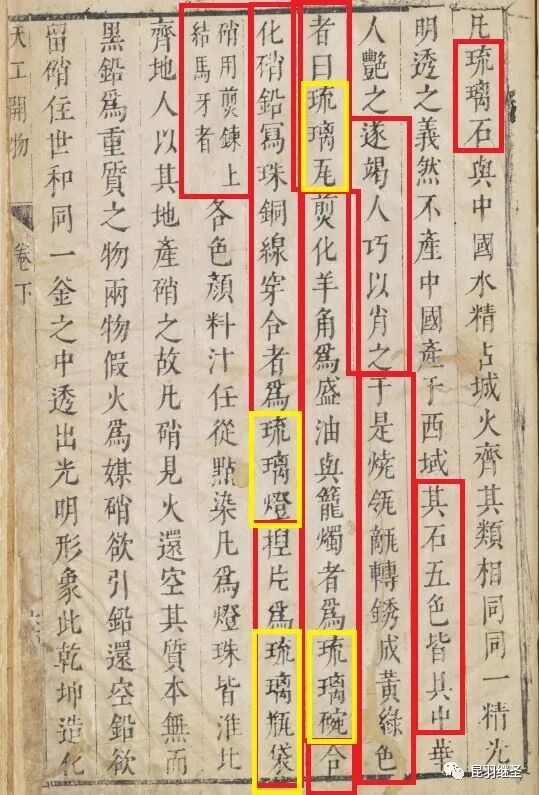 凡琉璃石與中國水精占城火齊其類相同同一精光
明透之義然不產中國產于西域其石五色皆具中華
人豔之遂竭人巧以肖之于是燒瓴甋轉銹成黃綠色
者曰琉璃瓦剪化羊角爲盛油與籠燭者爲琉璃碗合
化硝鉛寫珠銅線穿合者爲琉璃燈捏片爲琉璃瓶袋
硝用剪鍊上
結馬牙者
各色顏料汁任從點染凡爲燈珠皆淮北
齊地人以其地產硝之故凡硝見火還空其質本無而
黑鉛爲重質之物兩物假火爲媒硝欲引鉛還空鉛欲
留硝住世和同一釜之中透出光明形象此乾坤造化
天工開物 卷下
昆羽继圣